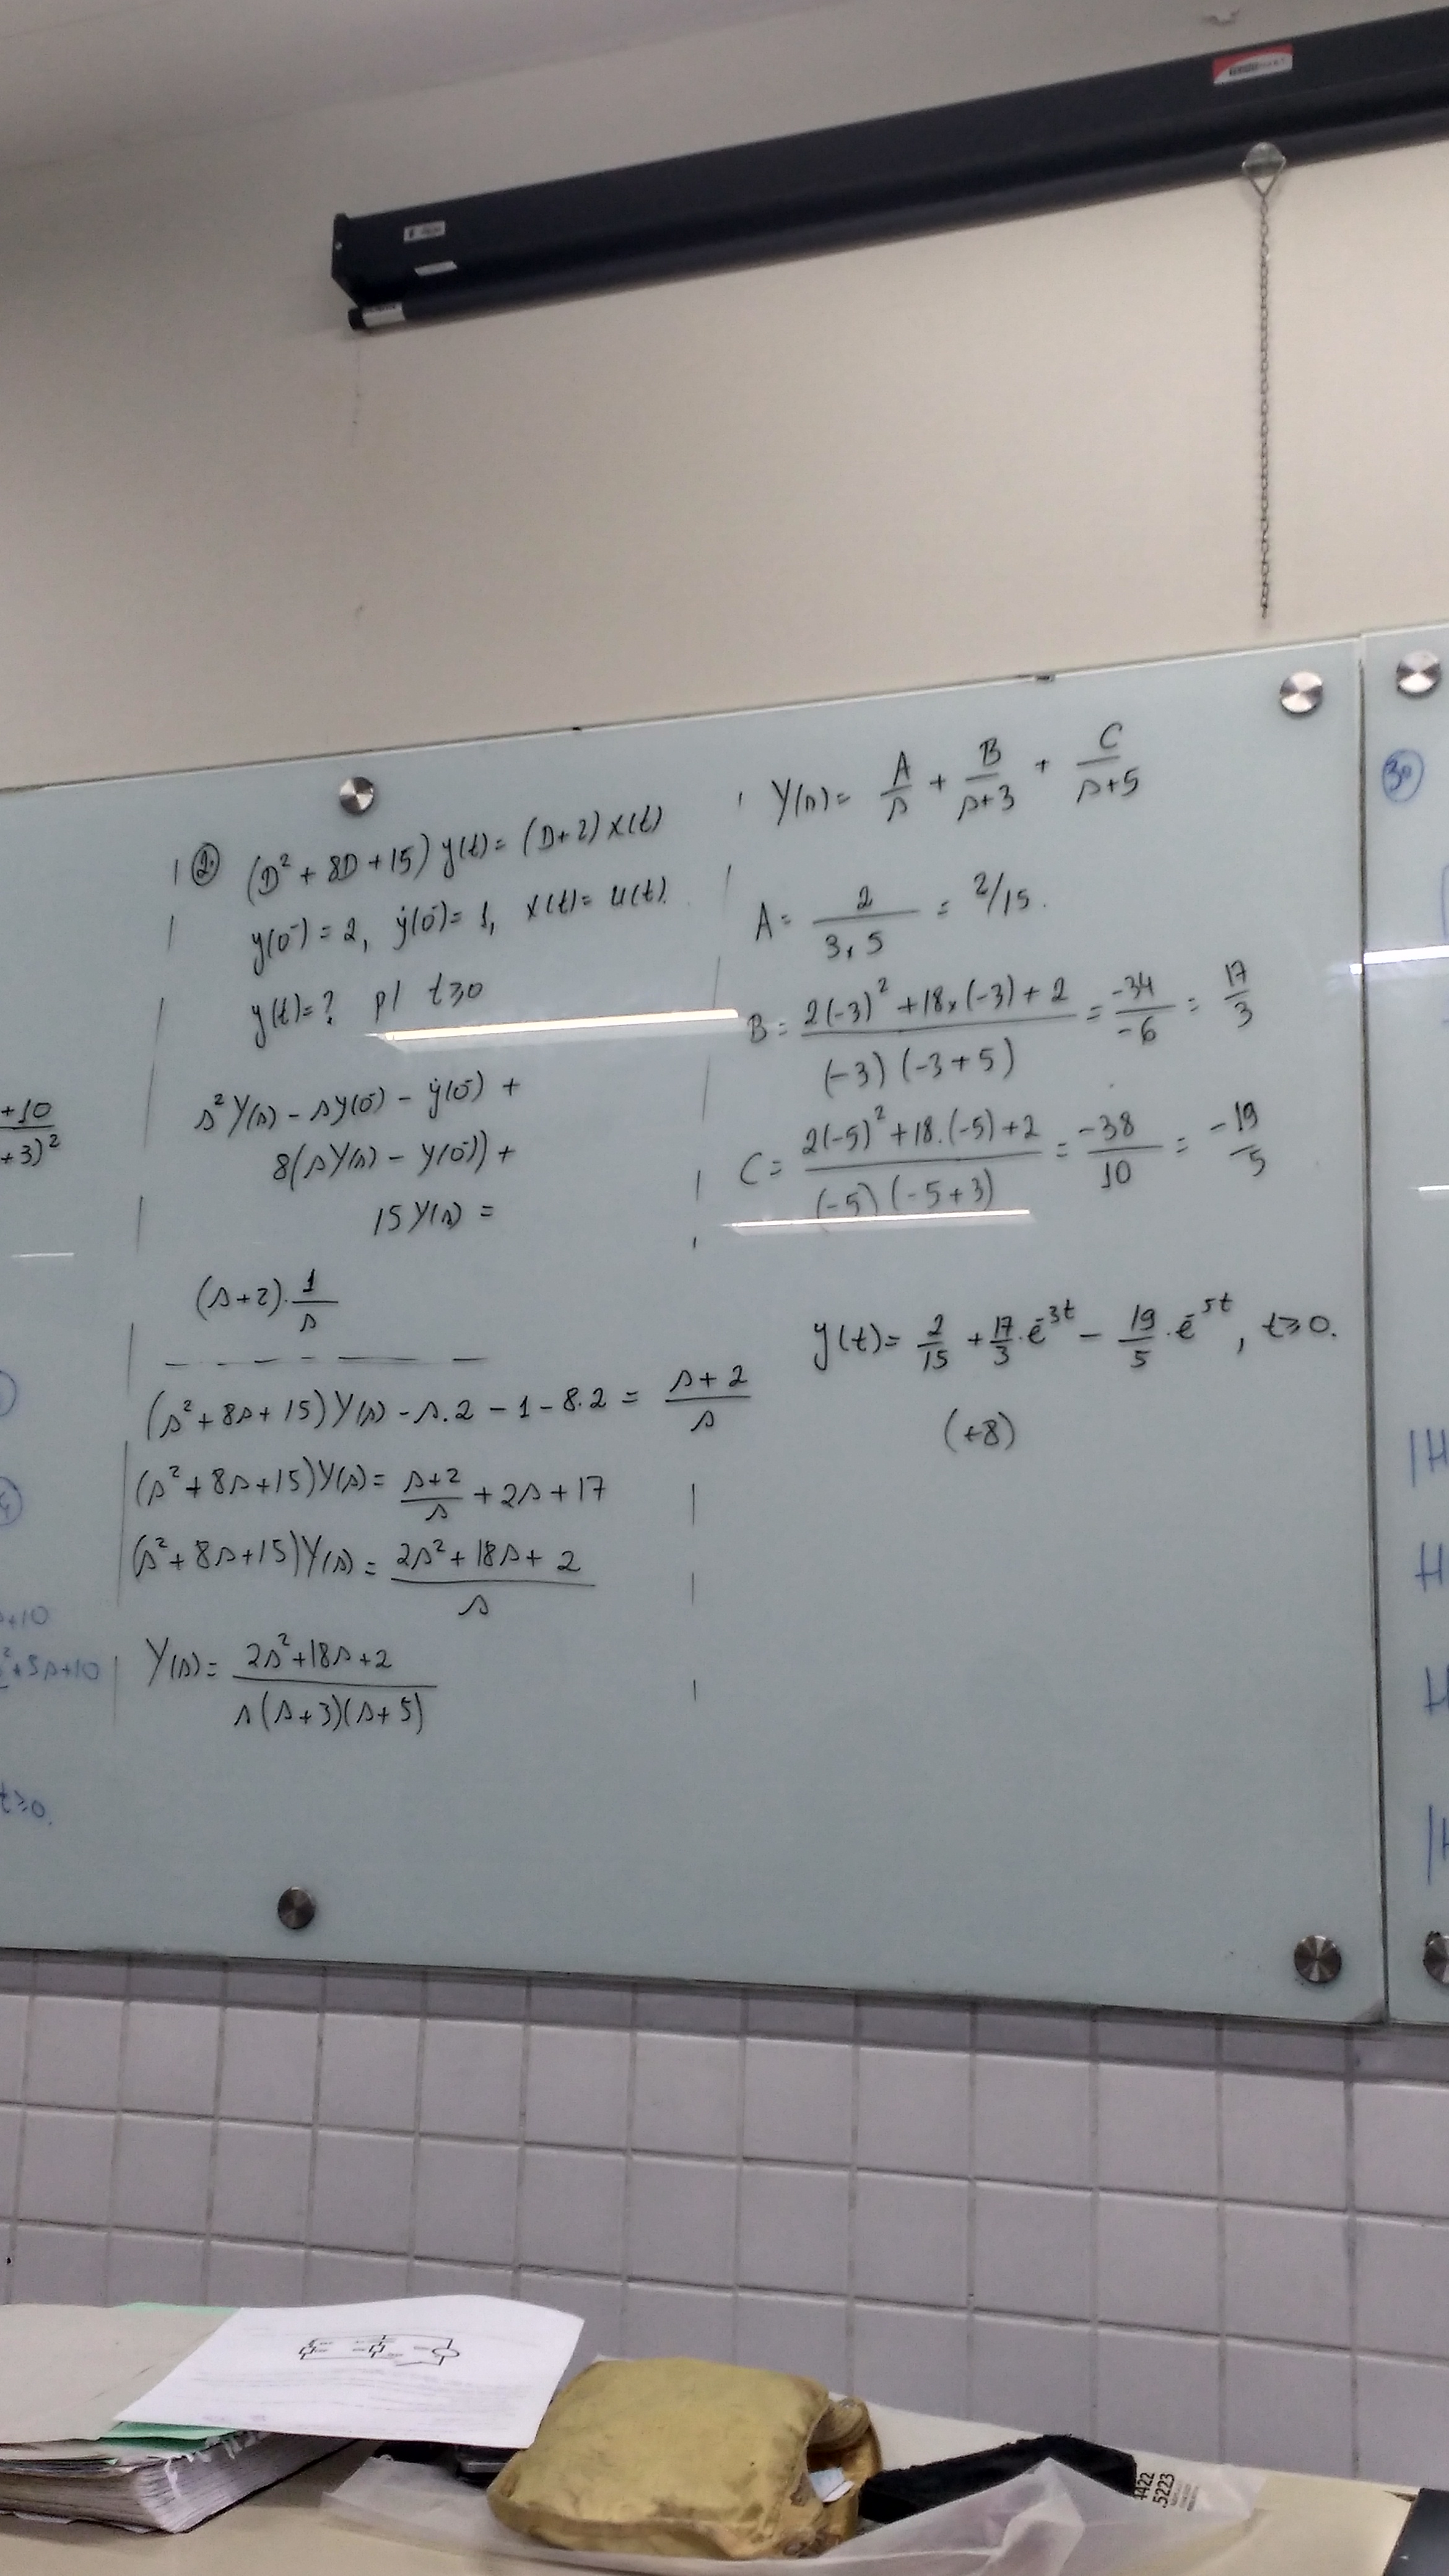 +10
+3)²
s+10
s²+3s+10
t≥0.
② (D² + 8D + 15) y(t) = (D+2) x(t)
y(0⁻) = 2, ẏ(0⁻) = 1, x(t) = u(t).
y(t) = ? p/ t≥0
s²Y(s) - sy(0⁻) - ẏ(0⁻) +
8(sY(s) - y(0⁻)) +
15Y(s) =
(s+2)·1/s
(s²+8s+15)Y(s) - s.2 - 1 - 8.2 = (s+2)/s
(s²+8s+15)Y(s) = (s+2)/s + 2s + 17
(s²+8s+15)Y(s) = (2s²+18s+2)/s
Y(s) = (2s²+18s+2)/(s(s+3)(s+5))
Y(s) = A/s + B/(s+3) + C/(s+5)
A = 2/(3×5) = 2/15.
B = (2(-3)²+18×(-3)+2)/((-3)(-3+5)) = -34/-6 = 17/3
C = (2(-5)²+18.(-5)+2)/((-5)(-5+3)) = -38/10 = -19/5
y(t) = 2/15 + 17/3·e⁻³ᵗ - 19/5·e⁻⁵ᵗ, t≥0.
(+8)
30
|H
H
H
|H
4422
.5223